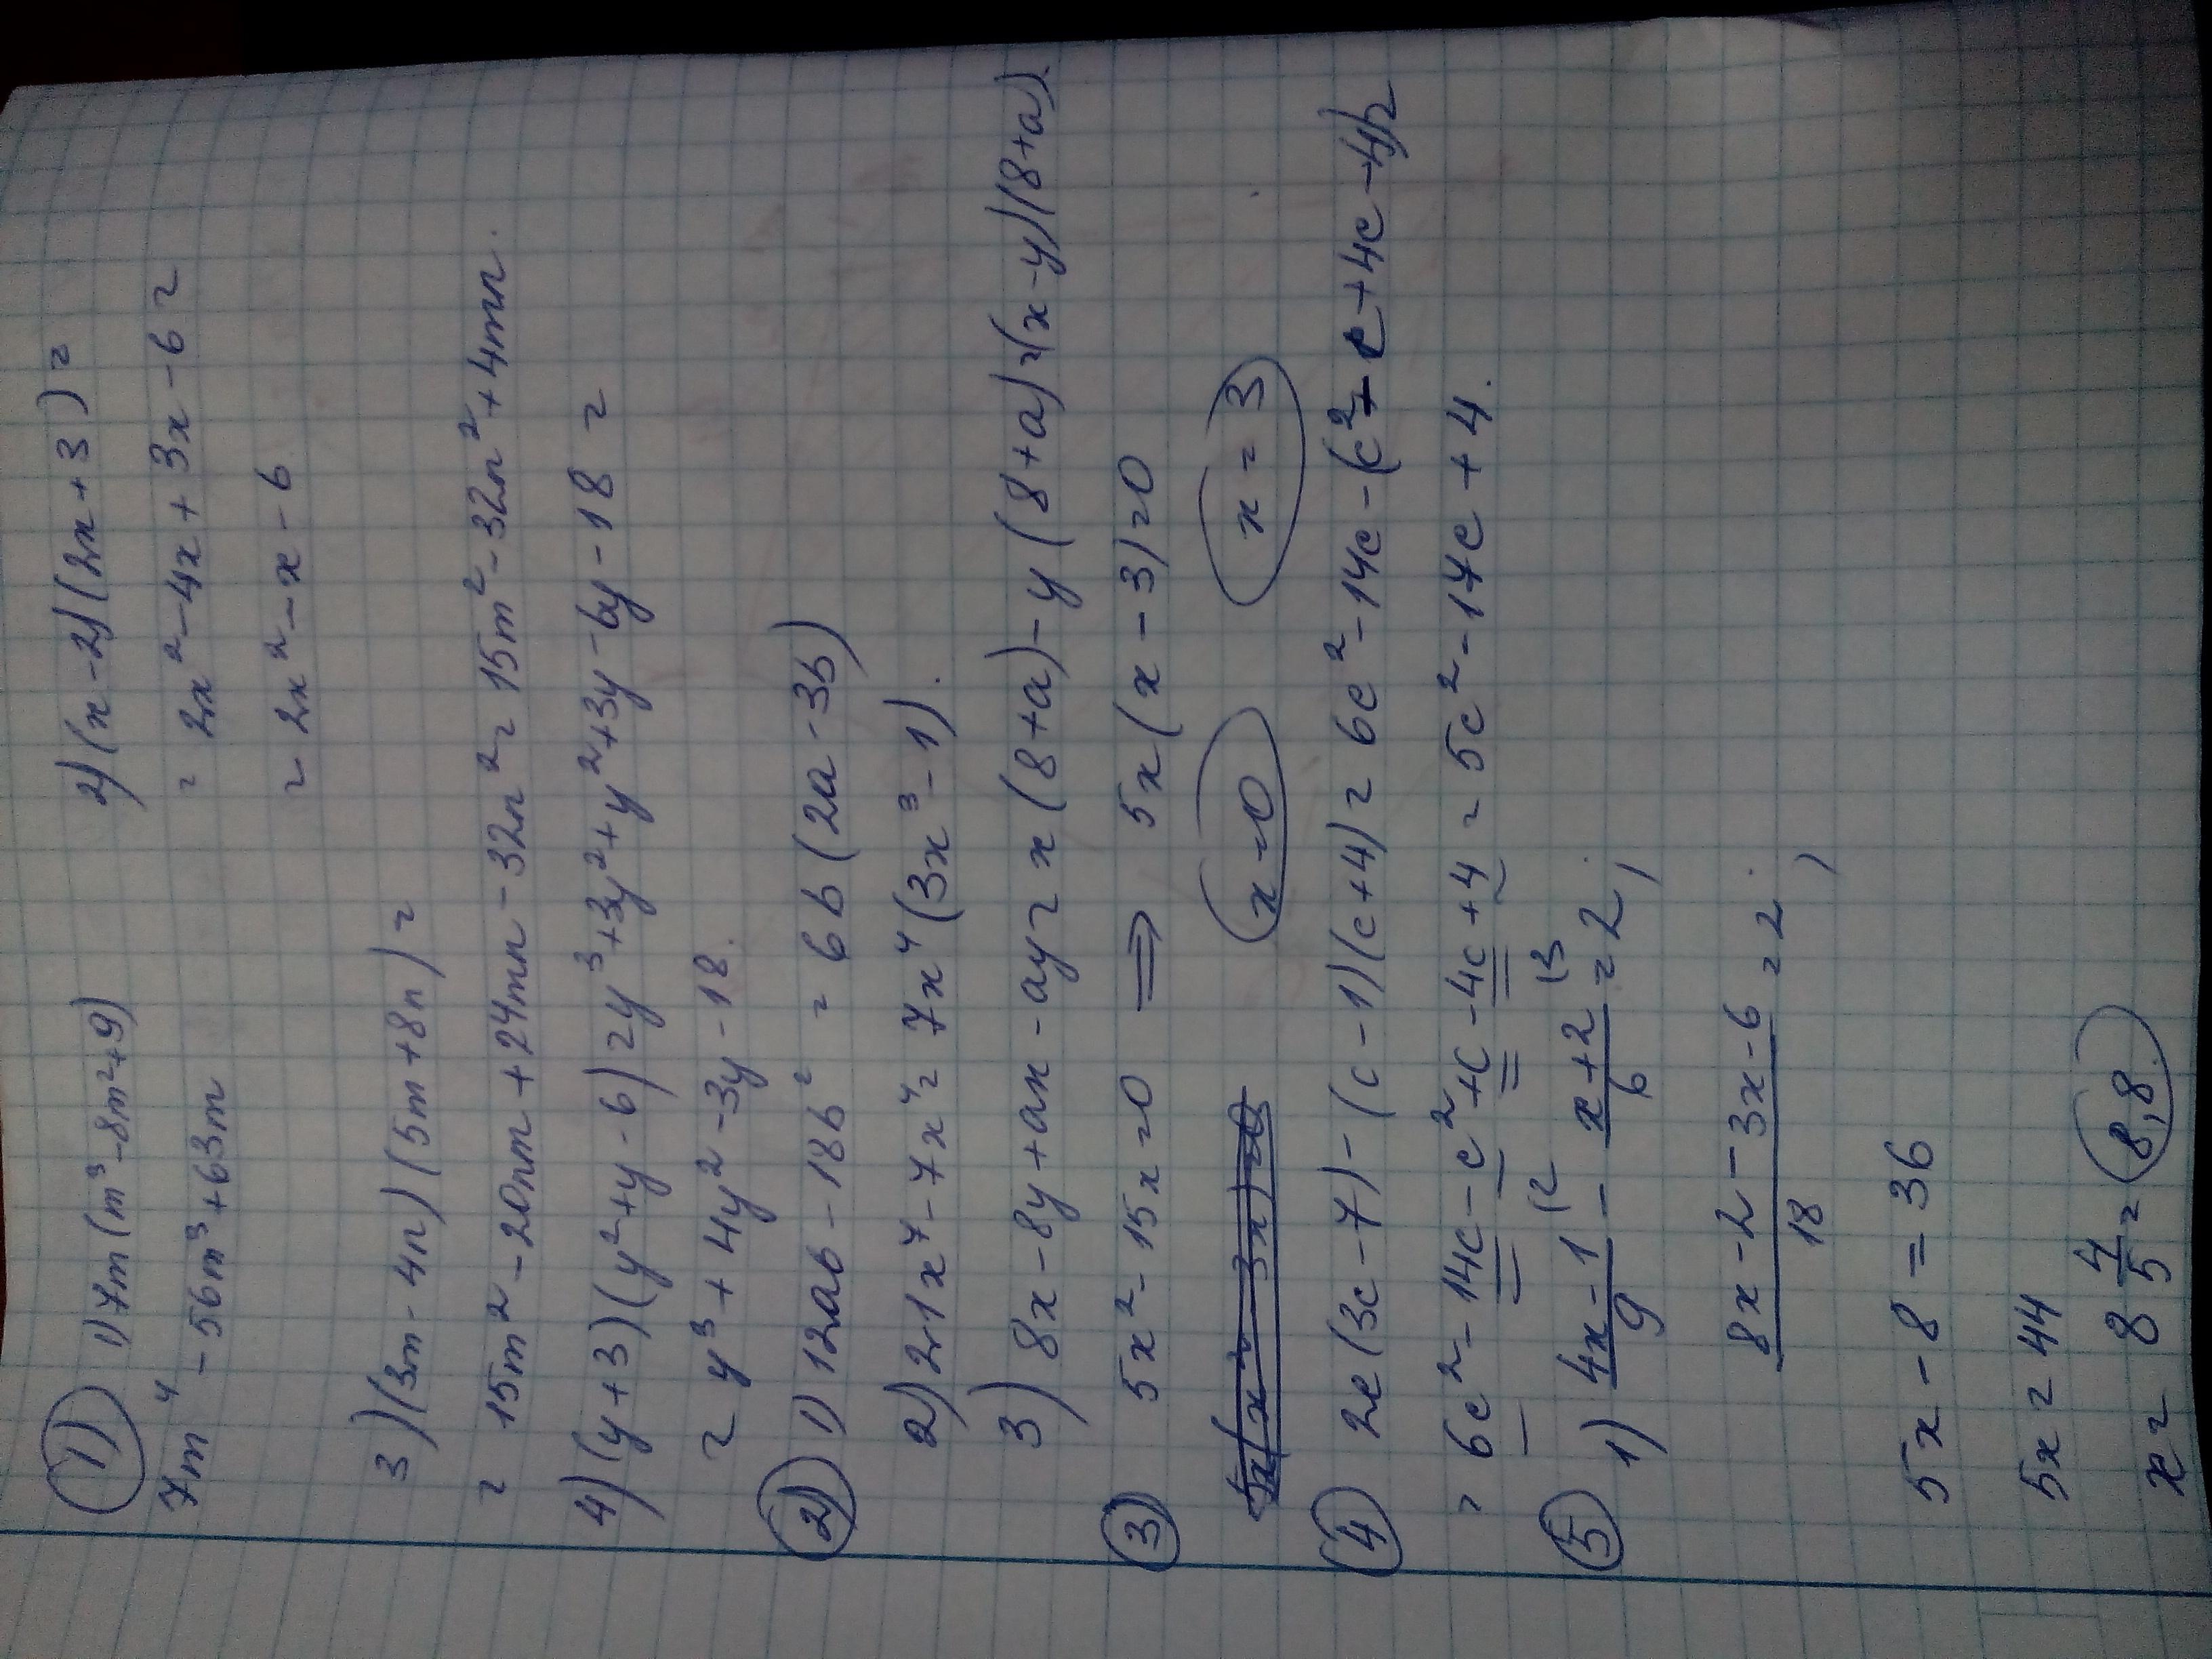 ① 1) 7m(m³-8m²+9)
7m⁴ - 56m³ + 63m
2) (x-2)(2x+3) =
= 2x² - 4x + 3x - 6 =
= 2x² - x - 6
3) (3m - 4n)(5m + 8n) =
= 15m² - 20nm + 24mn - 32n² = 15m² - 32n² + 4mn.
4) (y+3)(y²+y-6) = y³ + 3y² + y² + 3y - 6y - 18 =
= y³ + 4y² - 3y - 18.
② 1) 12ab - 18b² = 6b(2a - 3b)
2) 21x⁷ - 7x⁴ = 7x⁴(3x³ - 1).
3) 8x - 8y + ax - ay = x(8+a) - y(8+a) = (x-y)(8+a).
③ 5x² - 15x = 0 ⟹ 5x(x-3) = 0
x = 0 x = 3
④ 2c(3c-7) - (c-1)(c+4) = 6c² - 14c - (c² - c + 4c - 4) =
= 6c² - 14c - c² + c - 4c + 4 = 5c² - 17c + 4.
⑤ 1) (4x-1)/9 (2 - (x+2)/6 (3 = 2;
(8x - 2 - 3x - 6)/18 = 2;
5x - 8 = 36
5x = 44
x = 8 4/5 = 8,8